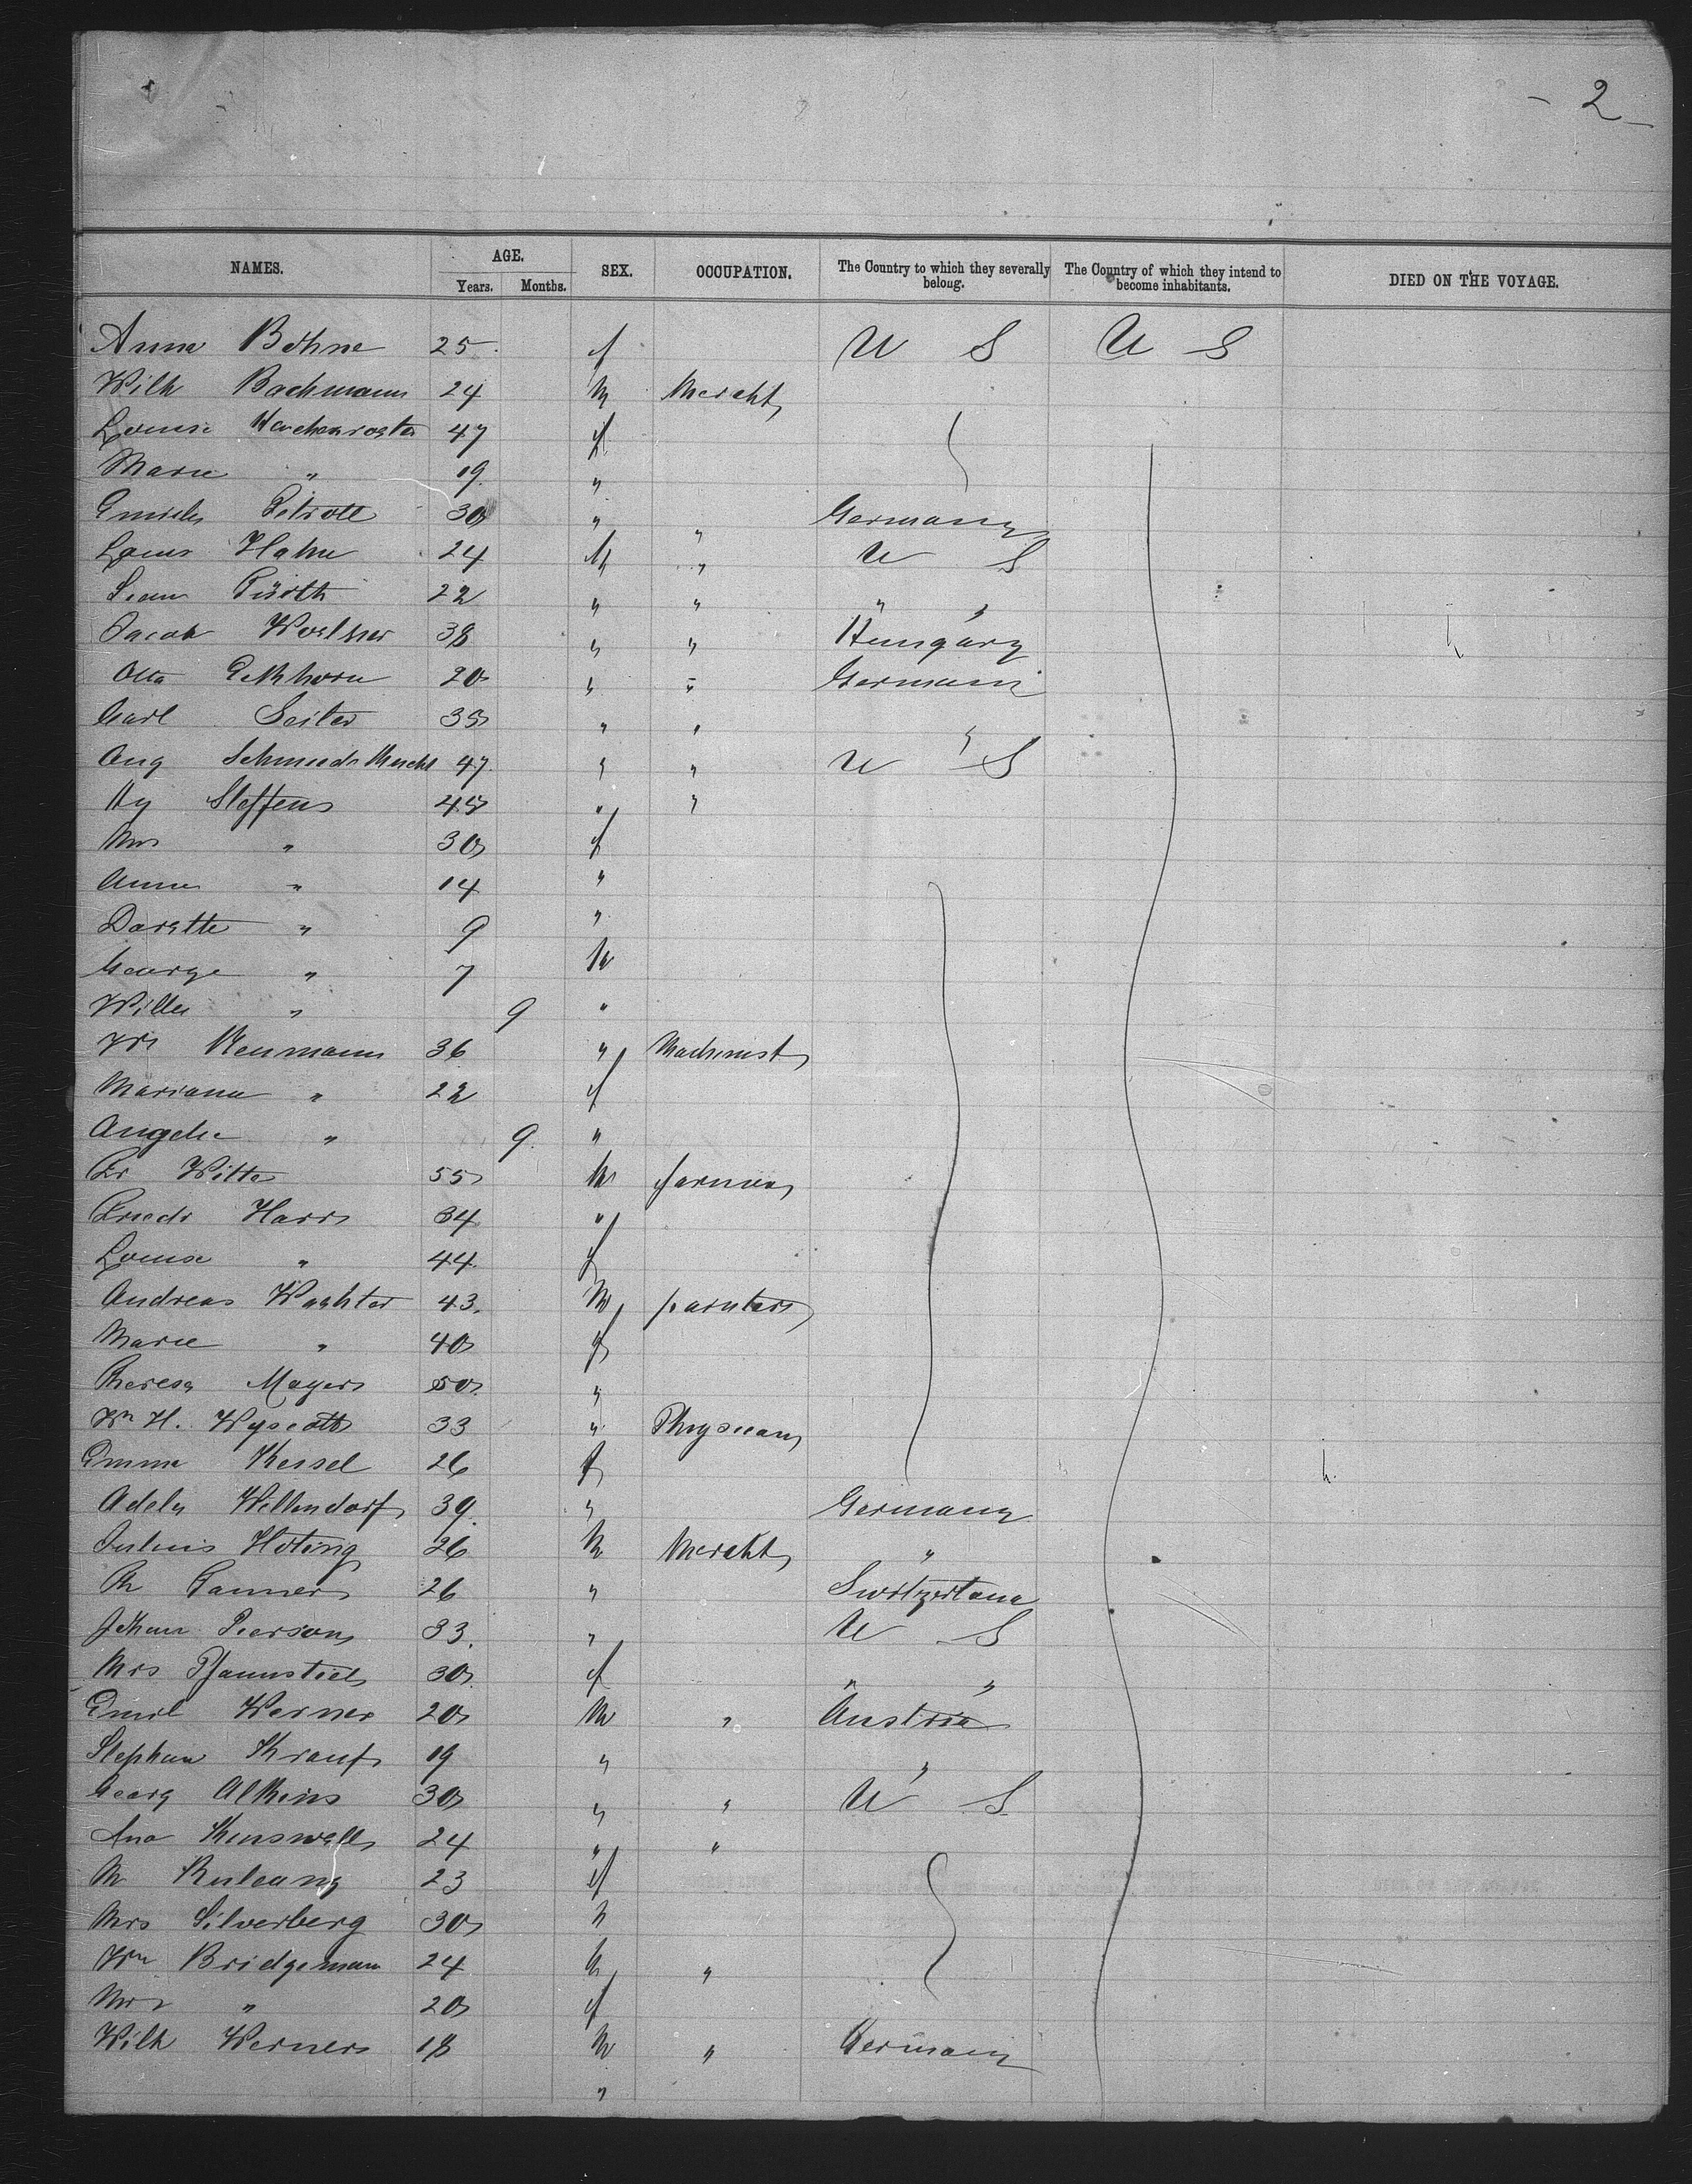 - 2 -
NAMES. AGE. SEX. OCCUPATION. The Country to which they severally belong. The Country of which they intend to become inhabitants. DIED ON THE VOYAGE.
Years. Months.
Anna Bohne 25 f U S U S
Wilh Bachmann 24 M Mercht
Louise 47 f
Marie " 19 "
30 " " Germany
Louis Hahn 24 M " U S
Fürth 22 " " " "
Jacob 38 " " Hungary
Otto Eckhorn 20 " " Germani
Carl Seiter 35 " " "
Aug 47 " " U S
Hy Steffens 45 " "
Mrs " 30 f
Anna " 14 "
Dorette " 9 "
George " 7 M
Willie " 9 "
Wm Neumann 36 " Machinist
Mariana " 22 f
Angelie " 9 "
Fr Witte 55 M farmer
Friedr Harrs 34 "
Louise " 44 f
Andreas Wachter 43 M painter
Marie " 40 f
Theresa Mayer 50 "
Wm H. Wyscott 33 " Physician
Emma Kessel 26 f
Adele Willendorf 39 " Germany
Julius Hoting 26 M Mercht "
Th Tanner 26 " Switzerland
Johan Pierson 33 " U S
Mrs Pfannstiel 30 f " "
Emil Werner 20 M " Austria
Stephan Krauss 19 " "
Georg Atkins 30 " " U S
24 " "
M 23 f
Mrs Silverberg 30 "
Wm Bridgeman 24 M "
Mrs " 20 f
Wilh Werner 18 M " Germany
"